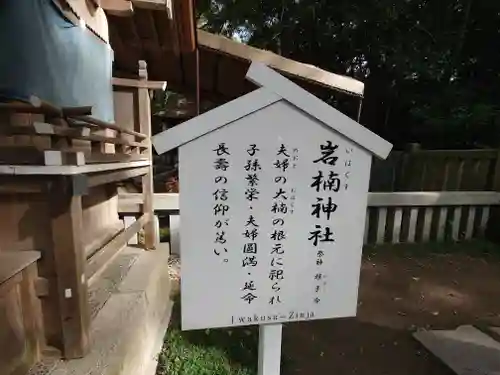 岩楠神社
いわくす
祭神 稚子命
夫婦の大楠の根元に祀られ
めおと おおくす ねもと
子孫繁栄・夫婦円満・延命
長壽の信仰が篤い。
Iwakusu-Zinja